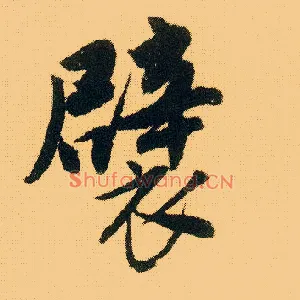 襞
Shufawang.CN